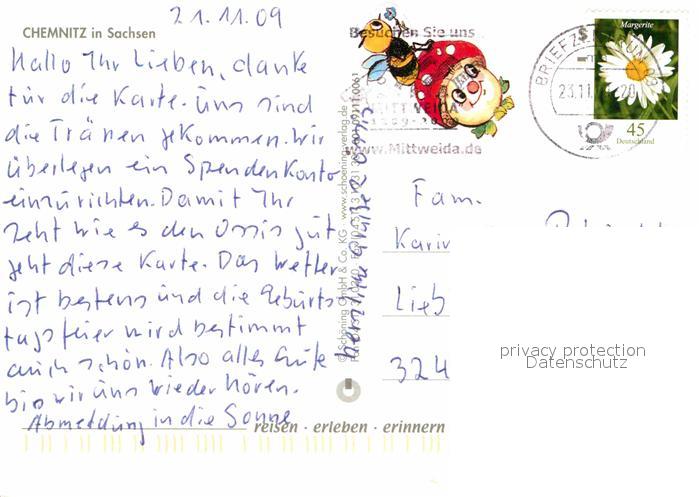 21.11.09
CHEMNITZ in Sachsen
Hallo Ihr Lieben, danke
für die Karte. Uns sind
die Tränen gekommen. Wir
überlegen ein Spendenkonto
einzurichten. Damit Ihr
seht wie es den Ossis gut
geht diese Karte. Das Wetter
ist bestens und die Geburts-
tagsfeier wird bestimmt
auch schön. Also alles Gute
bis wir uns wieder hören.
Abmeldung in die Sonne
herzliche Grüße
reisen · erleben · erinnern
© Schöning GmbH & Co. KG · www.schoening-verlag.de
Besuchen Sie uns
MITTWEIDA
www.Mittweida.de
BRIEFZENTRUM
23.11.
Margerite
45
Deutschland
Fam.
Karin
Lieb
324
privacy protection
Datenschutz